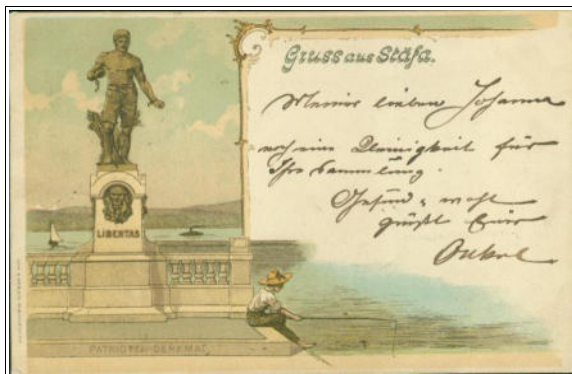 Gruss aus Stäfa.
Meiner lieben Johanna
noch eine Kleinigkeit für
Ihre Sammlung.
Gesund & wohl
grüßt Euer
Onkel
LIBERTAS
PATRIOTEN-DENKMAL